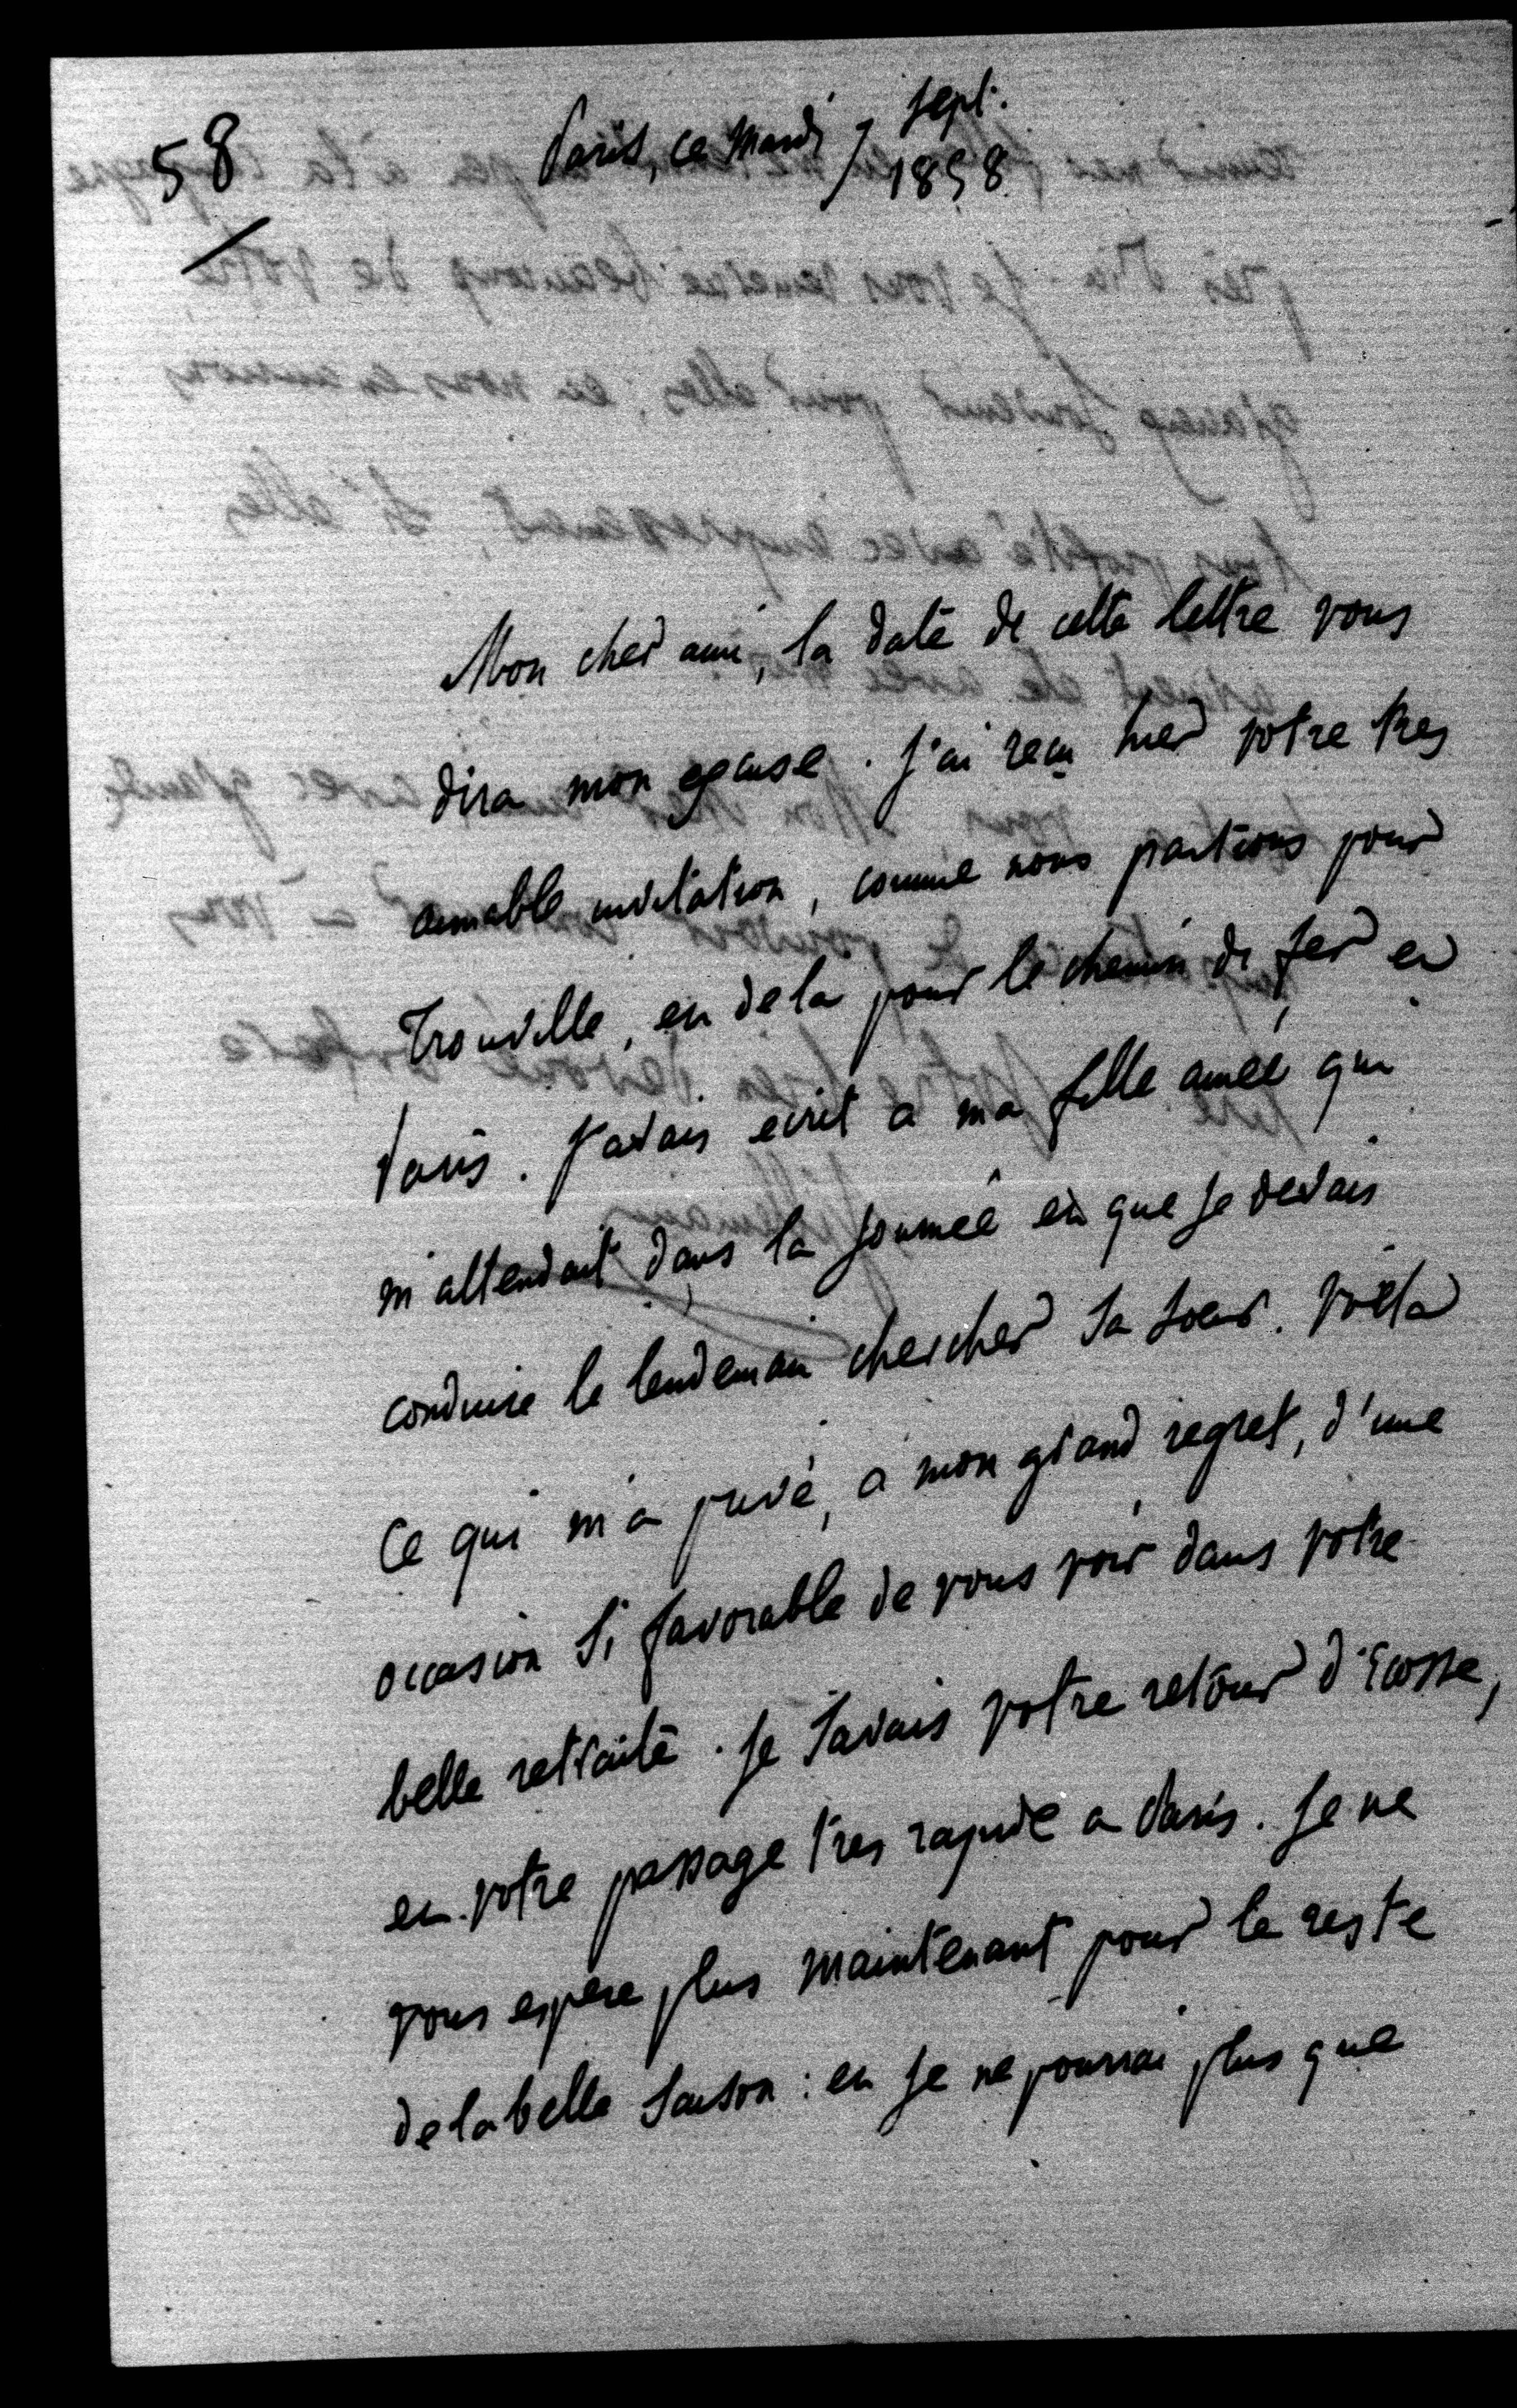 58
Paris, ce Mardi 7 Sept.
1858
Mon cher ami, la date de cette lettre vous
dira mon excuse. J'ai reçu hier votre tres
aimable invitation, comme nous partions pour
Trouville, et de la pour le chemin de fer et
Paris. J'avais ecrit a ma fille ainée qui
m'attendait dans la journée et que je devais
conduire le lendemain chercher sa soeur. Voila
ce qui m'a privé, a mon grand regret, d'une
occasion si favorable de vous voir dans votre
belle retraite. Je savais votre retour d'Ecosse,
et votre passage tres rapide a Paris. Je ne
vous espere plus maintenant pour le reste
de la belle saison: et je ne pourrai plus que